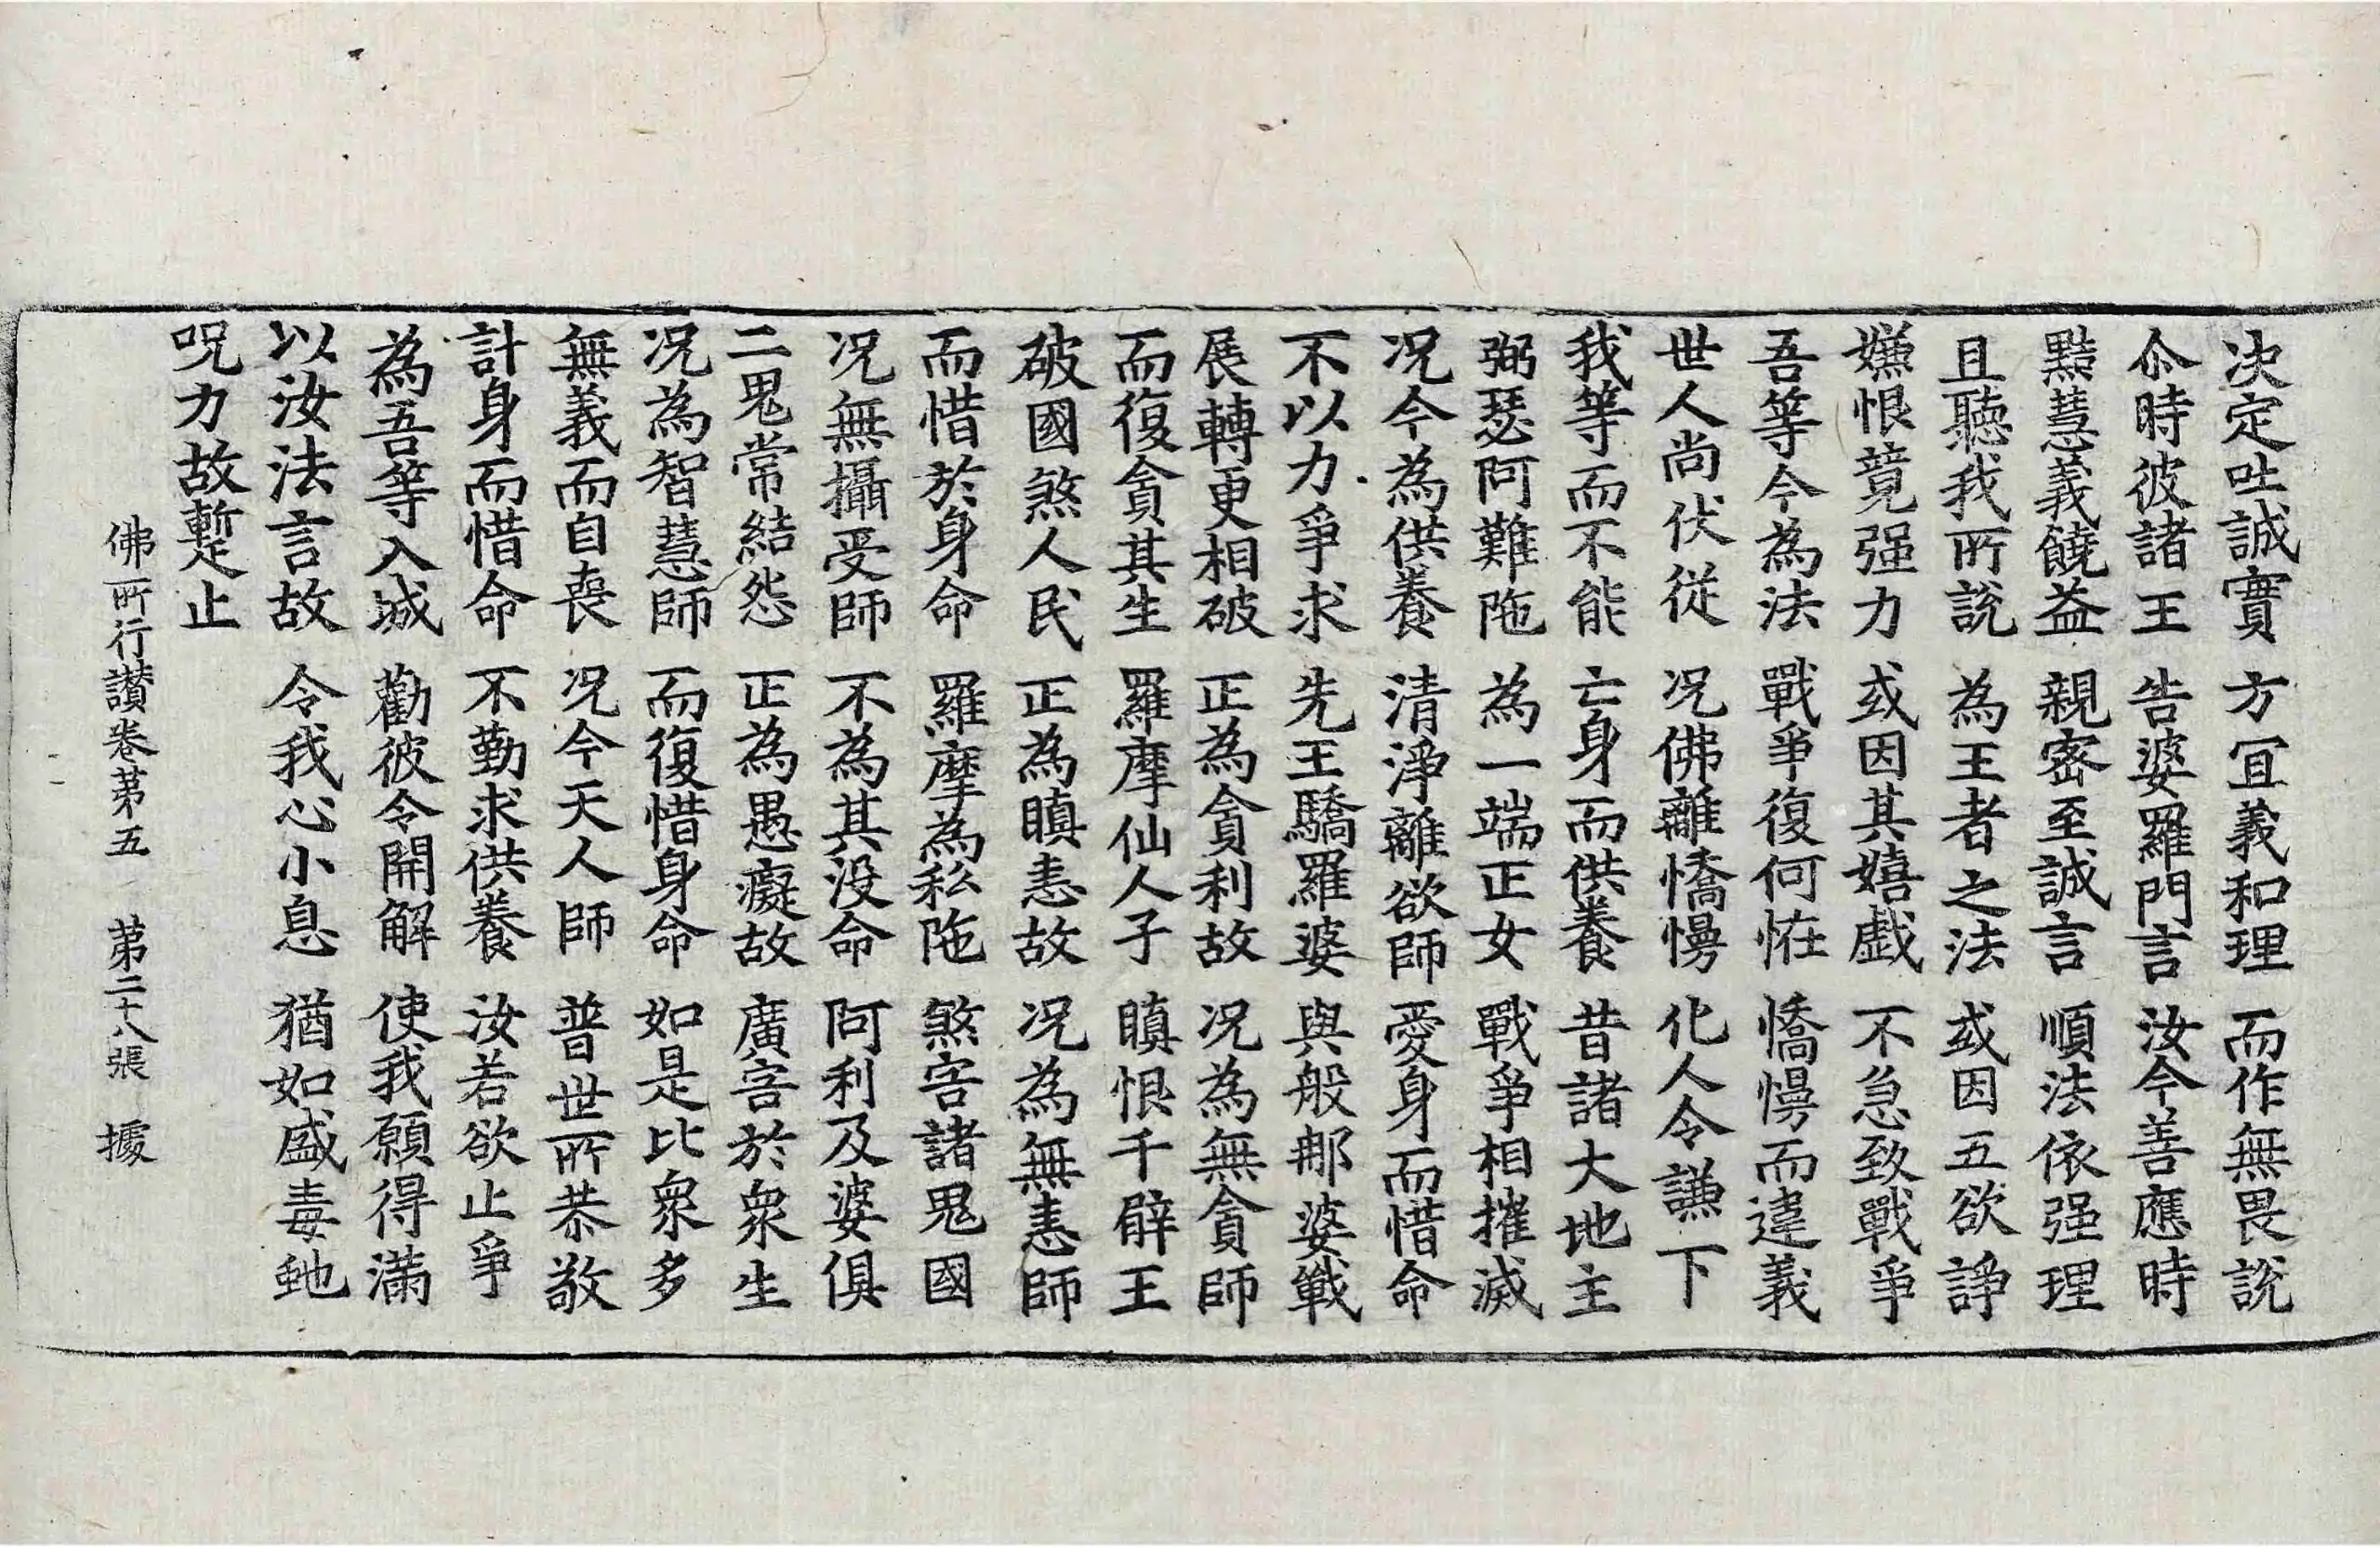 决定吐誠實 方宜義和理 而作無畏說
尒時彼諸王 告婆羅門言 汝今善應時
黠慧義饒益 親密至誠言 順法依强理
且聽我所說 為王者之法 或因五欲諍
嫌恨競强力 或因其嬉戲 不急致戰爭
吾等今為法 戰爭復何怪 憍慢而違義
世人尚伏從 況佛離憍慢 化人令謙下
我等而不能 亡身而供養 昔諸大地主
弼瑟阿難陁 為一端正女 戰爭相摧滅
況今為供養 清淨離欲師 愛身而惜命
不以力爭求 先王驕羅婆 與般那婆戰
展轉更相破 正為貪利故 況為無貪師
而復貪其生 羅摩仙人子 瞋恨千臂王
破國煞人民 正為瞋恚故 況為無恚師
而惜於身命 羅摩為私陁 煞害諸鬼國
況無攝受師 不為其没命 阿利及婆俱
二鬼常結怨 正為愚癡故 廣害於衆生
況為智慧師 而復惜身命 如是比衆多
無義而自喪 況今天人師 普世所恭敬
計身而惜命 不勤求供養 汝若欲止爭
為吾等入城 勸彼令開解 使我願得滿
以汝法言故 令我心小息 猶如盛毒虵
呪力故暫止
佛所行讃卷苐五 苐二十八張 據